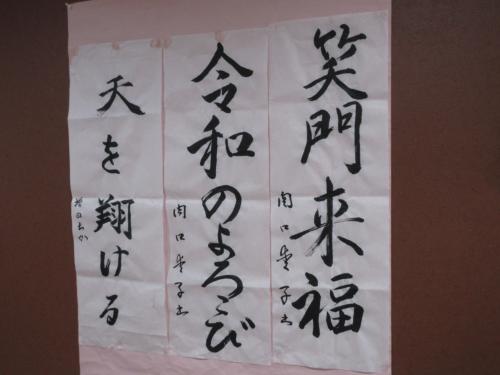 笑門来福
関口愛子書
令和のよろこび
関口愛子書
天を翔ける